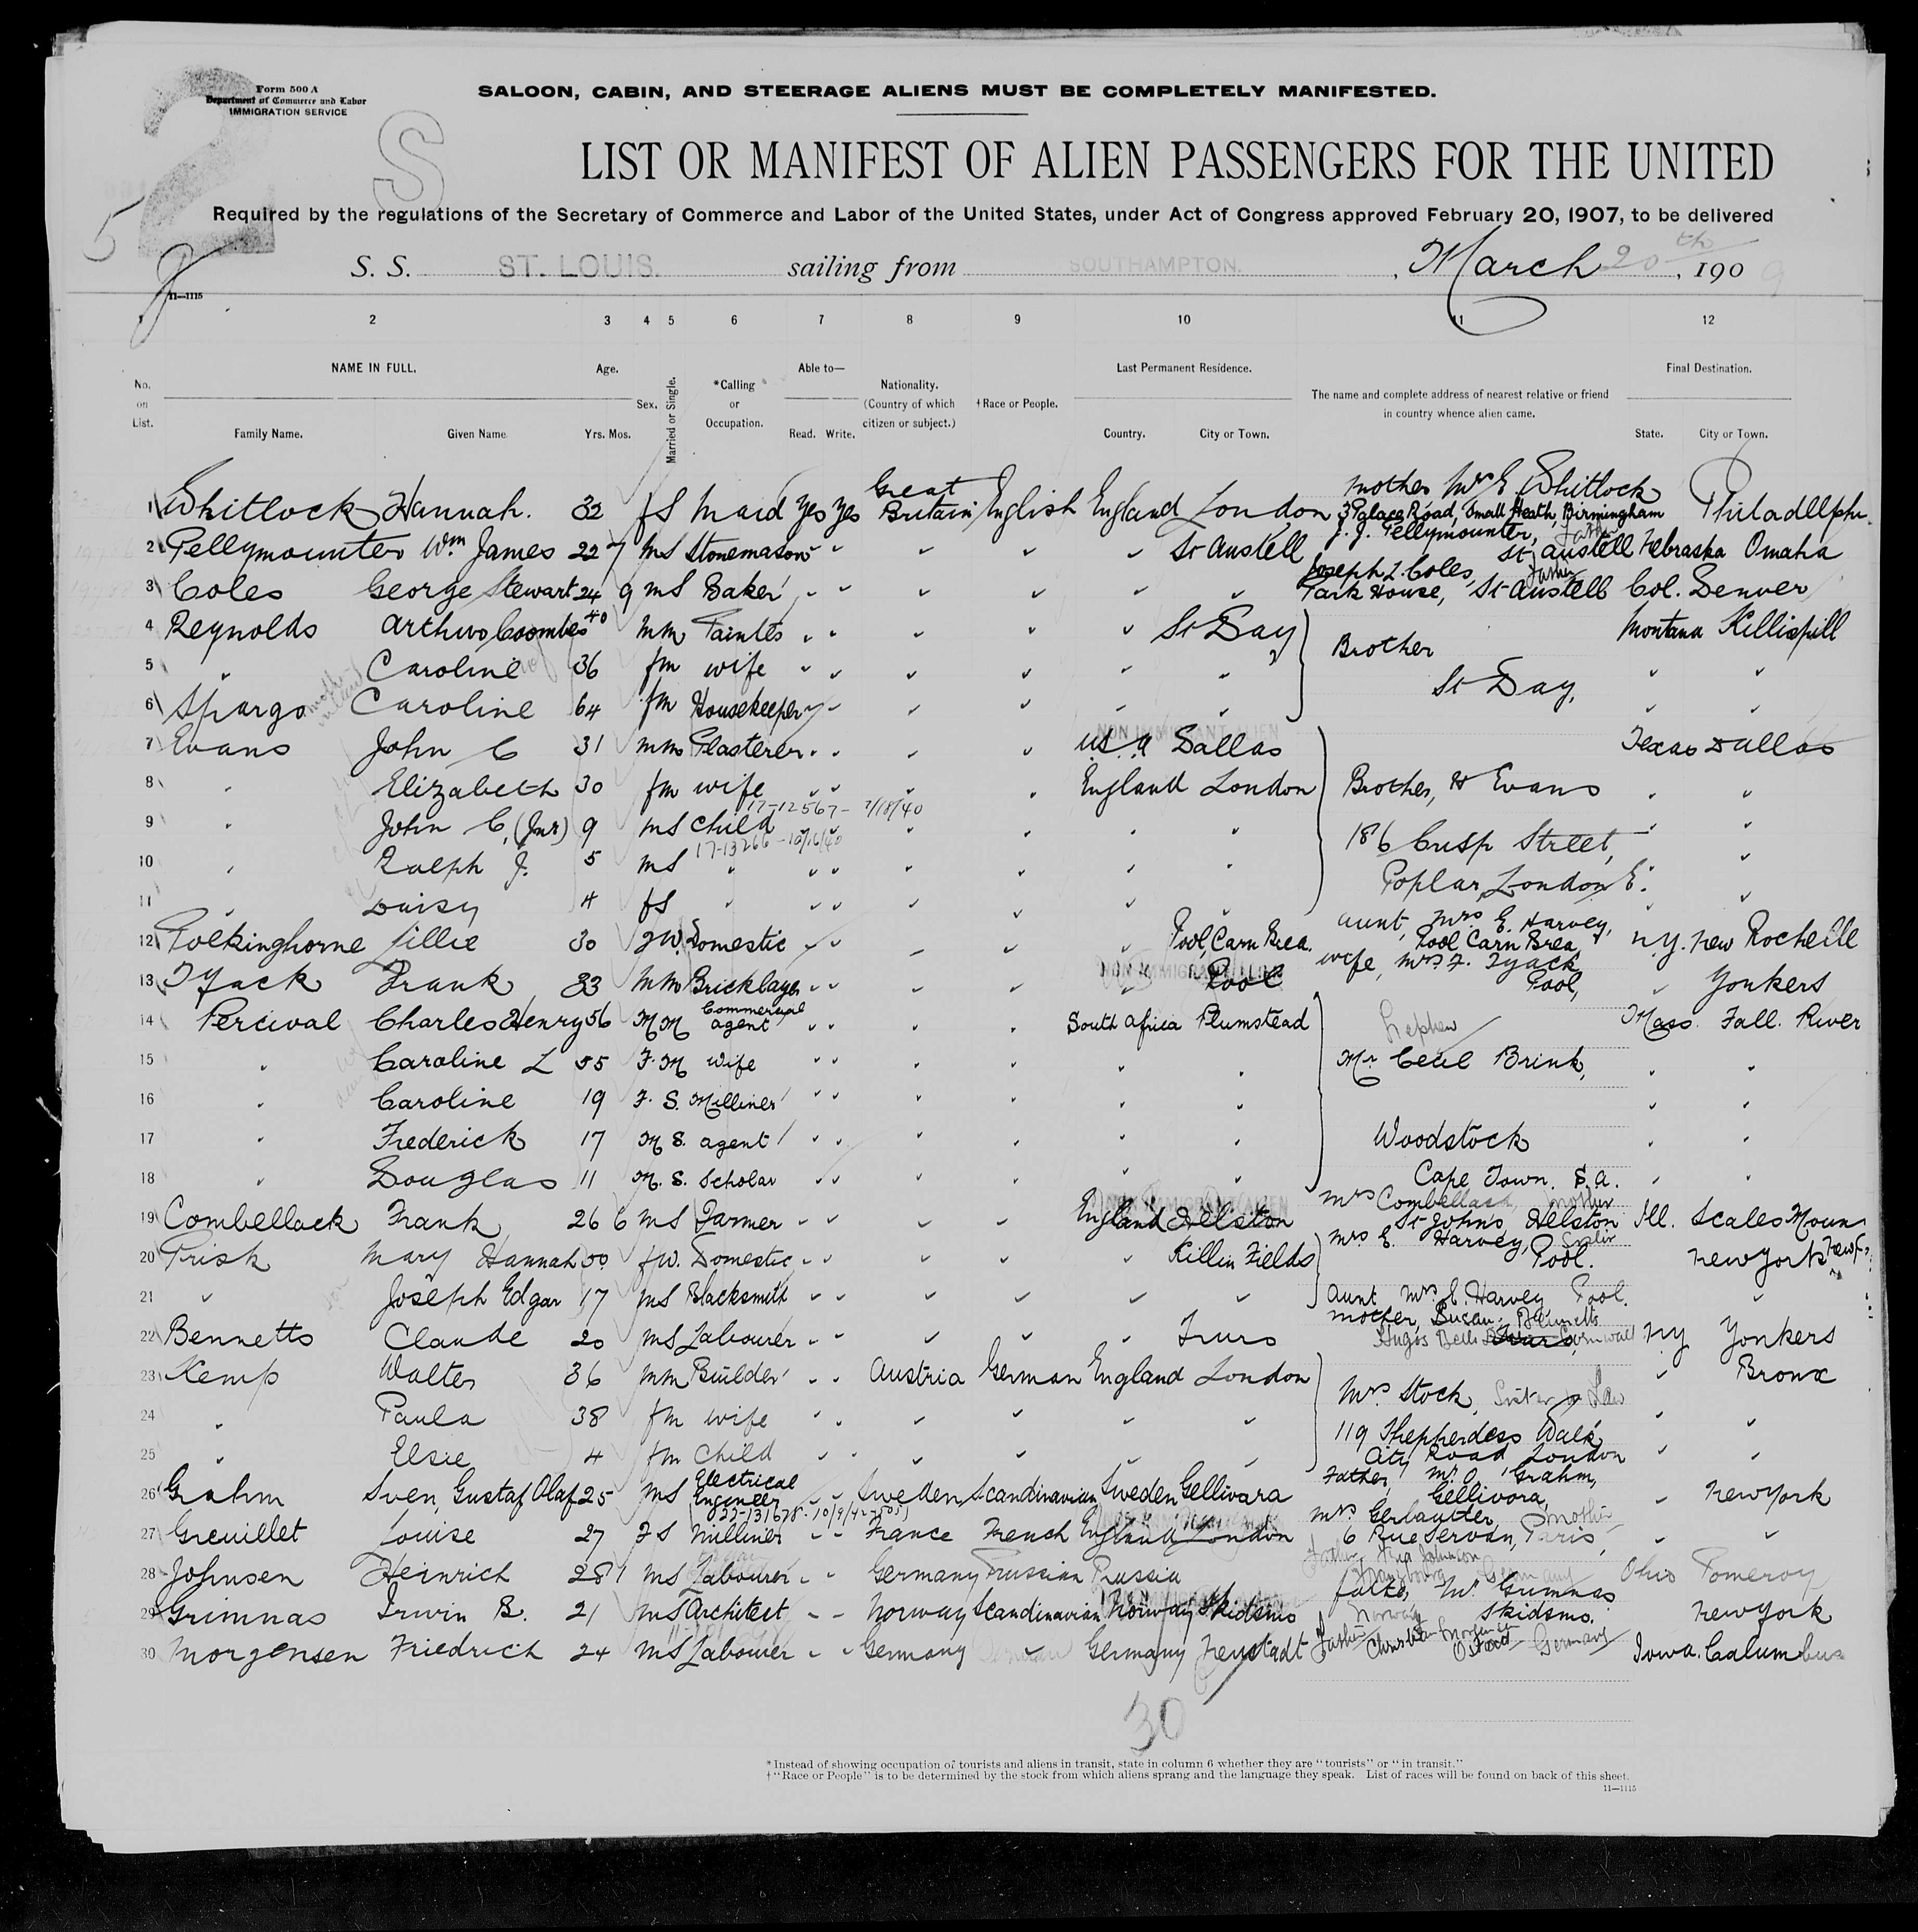 Form 500 A
Department of Commerce and Labor
IMMIGRATION SERVICE
SALOON, CABIN, AND STEERAGE ALIENS MUST BE COMPLETELY MANIFESTED.
2
S
5
LIST OR MANIFEST OF ALIEN PASSENGERS FOR THE UNITED
Required by the regulations of the Secretary of Commerce and Labor of the United States, under Act of Congress approved February 20, 1907, to be delivered
S. S. ST. LOUIS. sailing from SOUTHAMPTON. , March 20th, 1909
11—1115
1 2 3 4 5 6 7 8 9 10 11 12
No. on List. NAME IN FULL. Age. Sex. Married or Single. *Calling or Occupation. Able to— Nationality. (Country of which citizen or subject.) †Race or People. Last Permanent Residence. The name and complete address of nearest relative or friend in country whence alien came. Final Destination.
Family Name. Given Name Yrs. Mos. Read. Write. Country. City or Town. State. City or Town.
1 Whitlock Hannah. 32 f S Maid Yes Yes Great Britain English England London Mother Mrs E. Whitlock 3 Palace Road, Small Heath, Birmingham Philadelphi
2 Pellymounter Wm James 22 7 m S Stonemason " " " " " St Austell J. J. Pellymounter, Father St Austell Nebraska Omaha
3 Coles George Stewart 24 9 m S Baker " " " " " " Joseph L. Coles, Father Park House, St Austell Col. Denver
4 Reynolds Arthur Coombes 40 m m Painter " " " " " St Day Brother Montana Killispill
5 " Caroline 36 f m wife " " " " " " St Day, " "
6 Spargo Caroline 64 f m Housekeeper " " " " " " " "
7 Evans John C 31 m m Plasterer " " " " NON IMMIGRANT ALIEN U.S.A Dallas Texas Dallas
8 " Elizabeth 30 f m wife " " " " England London Brother, H Evans " "
17-12567- 7/18/40
9 " John C, (Jnr) 9 m S child " " " " " " 186 Crisp Street, " "
17-13266 - 10/16/40
10 " Ralph J. 5 m S " " " " " " " Poplar, London E. "
11 " Daisy 4 f S " " " " " " " "
12 Polkinghorne Lillie 30 f W. Domestic " " " " " Pool, Carn Brea. Aunt, Mrs E. Harvey, Pool Carn Brea, N.Y. New Rochelle
13 Tyack Frank 33 m m Bricklayer " " " " NON IMMIGRANT ALIEN " Pool wife, Mrs F. Tyack Pool, " Yonkers
14 Percival Charles Henry 56 M M Commercial agent " " " " South Africa Plumstead Nephew Mass. Fall. River
15 " Caroline L 55 F. M wife " " " " " " Mr Cecil Brink, " "
16 " Caroline 19 F. S. Milliner " " " " " " " "
17 " Frederick 17 M S. agent " " " " " " Woodstock " "
18 " Douglas 11 M. S. Scholar " " " " " " Cape Town. S.A. " "
19 Combellack Frank 26 6 m S Farmer " " " " England Helston Mrs Combellack, Mother St Johns Helston Ill. Scales Moun
20 Prisk Mary Hannah 50 f W. Domestic " " " " " Killin Fields Mrs E. Harvey, Sister Pool. New York
21 " Joseph Edgar 17 m S Blacksmith " " " " " " Aunt Mrs E. Harvey Pool. "
22 Bennetts Claude 20 m S Labourer " " " " " Truro Mother, Susan. Bennetts Cornwall N.Y Yonkers
23 Kemp Walter 36 m m Builder " " Austria German England London " Bronx
24 " Paula 38 f m wife " " " " " " Mrs Stock, Sister in Law " "
25 " Elsie 4 f m Child " " " " " " 119 Shepherdess Walk, City Road London " "
26 Grahm Sven Gustaf Olaf 25 m S Electrical Engineer " " Sweden Scandinavian Sweden Gellivara Father, Mr O Grahm, Gellivora, " New York
27 Greuillet Louise 27 F S Milliner " " France French England London Mrs Gerlautter, Mother 6 Rue Servan, Paris, " "
28 Johnsen Heinrich 28 1 m S Labourer " " Germany Prussian Prussia Ohio Pomeroy
29 Grimnas Irwin B. 21 m S Architect " " Norway Scandinavian Norway Skidsmo father, Mr Grimnas Skidsmo. Norway New York
30 Morgensen Friedrich 24 m S Labourer " " Germany " Germany Father Christian Morgensen Germany Iowa. Calumbus
30
*Instead of showing occupation of tourists and aliens in transit, state in column 6 whether they are "tourists" or "in transit."
†"Race or People" is to be determined by the stock from which aliens sprang and the language they speak. List of races will be found on back of this sheet.
11—1115